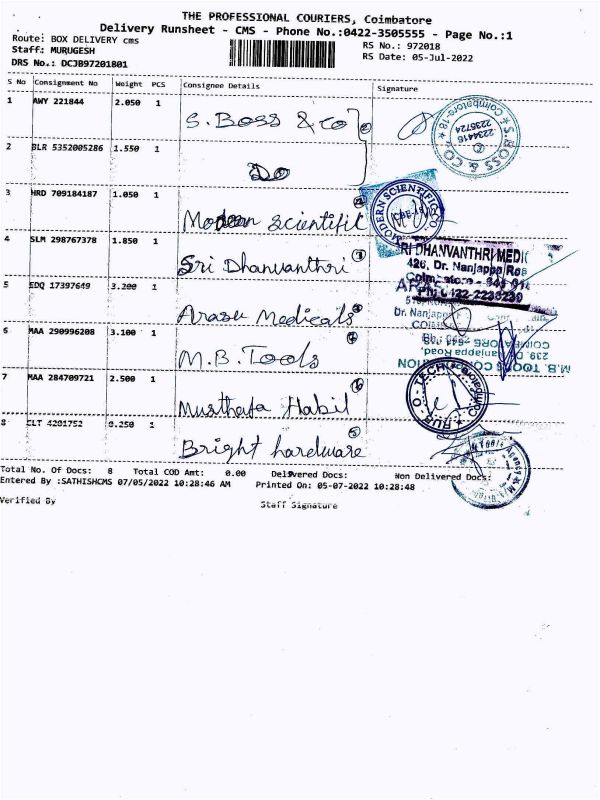 THE PROFESSIONAL COURIERS, Coimbatore
Delivery Runsheet - CMS - Phone No.:0422-3505555 - Page No.:1
Route: BOX DELIVERY cms
RS No.: 972018
Staff: MURUGESH
RS Date: 05-Jul-2022
DRS No.: DCJB97201801
S No Consignment No Weight PCS Consignee Details Signature
1 AWY 221844 2.050 1 S. Boss & Co
S.BOSS & CO. Coimbatore-18
2234416
2235724
2 BLR 5352005286 1.550 1 Do
3 HRD 709184187 1.050 1 Modern Scientific
MODERN SCIENTIFIC CO.
4 SLM 298767378 1.850 1 Sri Dhanvanthri
SRI DHANVANTHRI MEDIC
426, Dr. Nanjappa Roa
Coimbatore - 641 01
Ph: 0422-2238230
5 EDQ 17397649 3.200 1 Arasu Medicals
Dr. Nanjapp
6 MAA 290996208 3.100 1 M.B. Tools
M.B. TOOLS CORPORATION
239, Dr. Nanjappa Road,
COIMBATORE
7 MAA 284709721 2.500 1 Musthafa Habil
8 CLT 4201752 0.250 1 Bright hardware
Total No. Of Docs: 8 Total COD Amt: 0.00 Delivered Docs: Non Delivered Docs:
Entered By :SATHISHCMS 07/05/2022 10:28:46 AM Printed On: 05-07-2022 10:28:48
Verified By Staff Signature